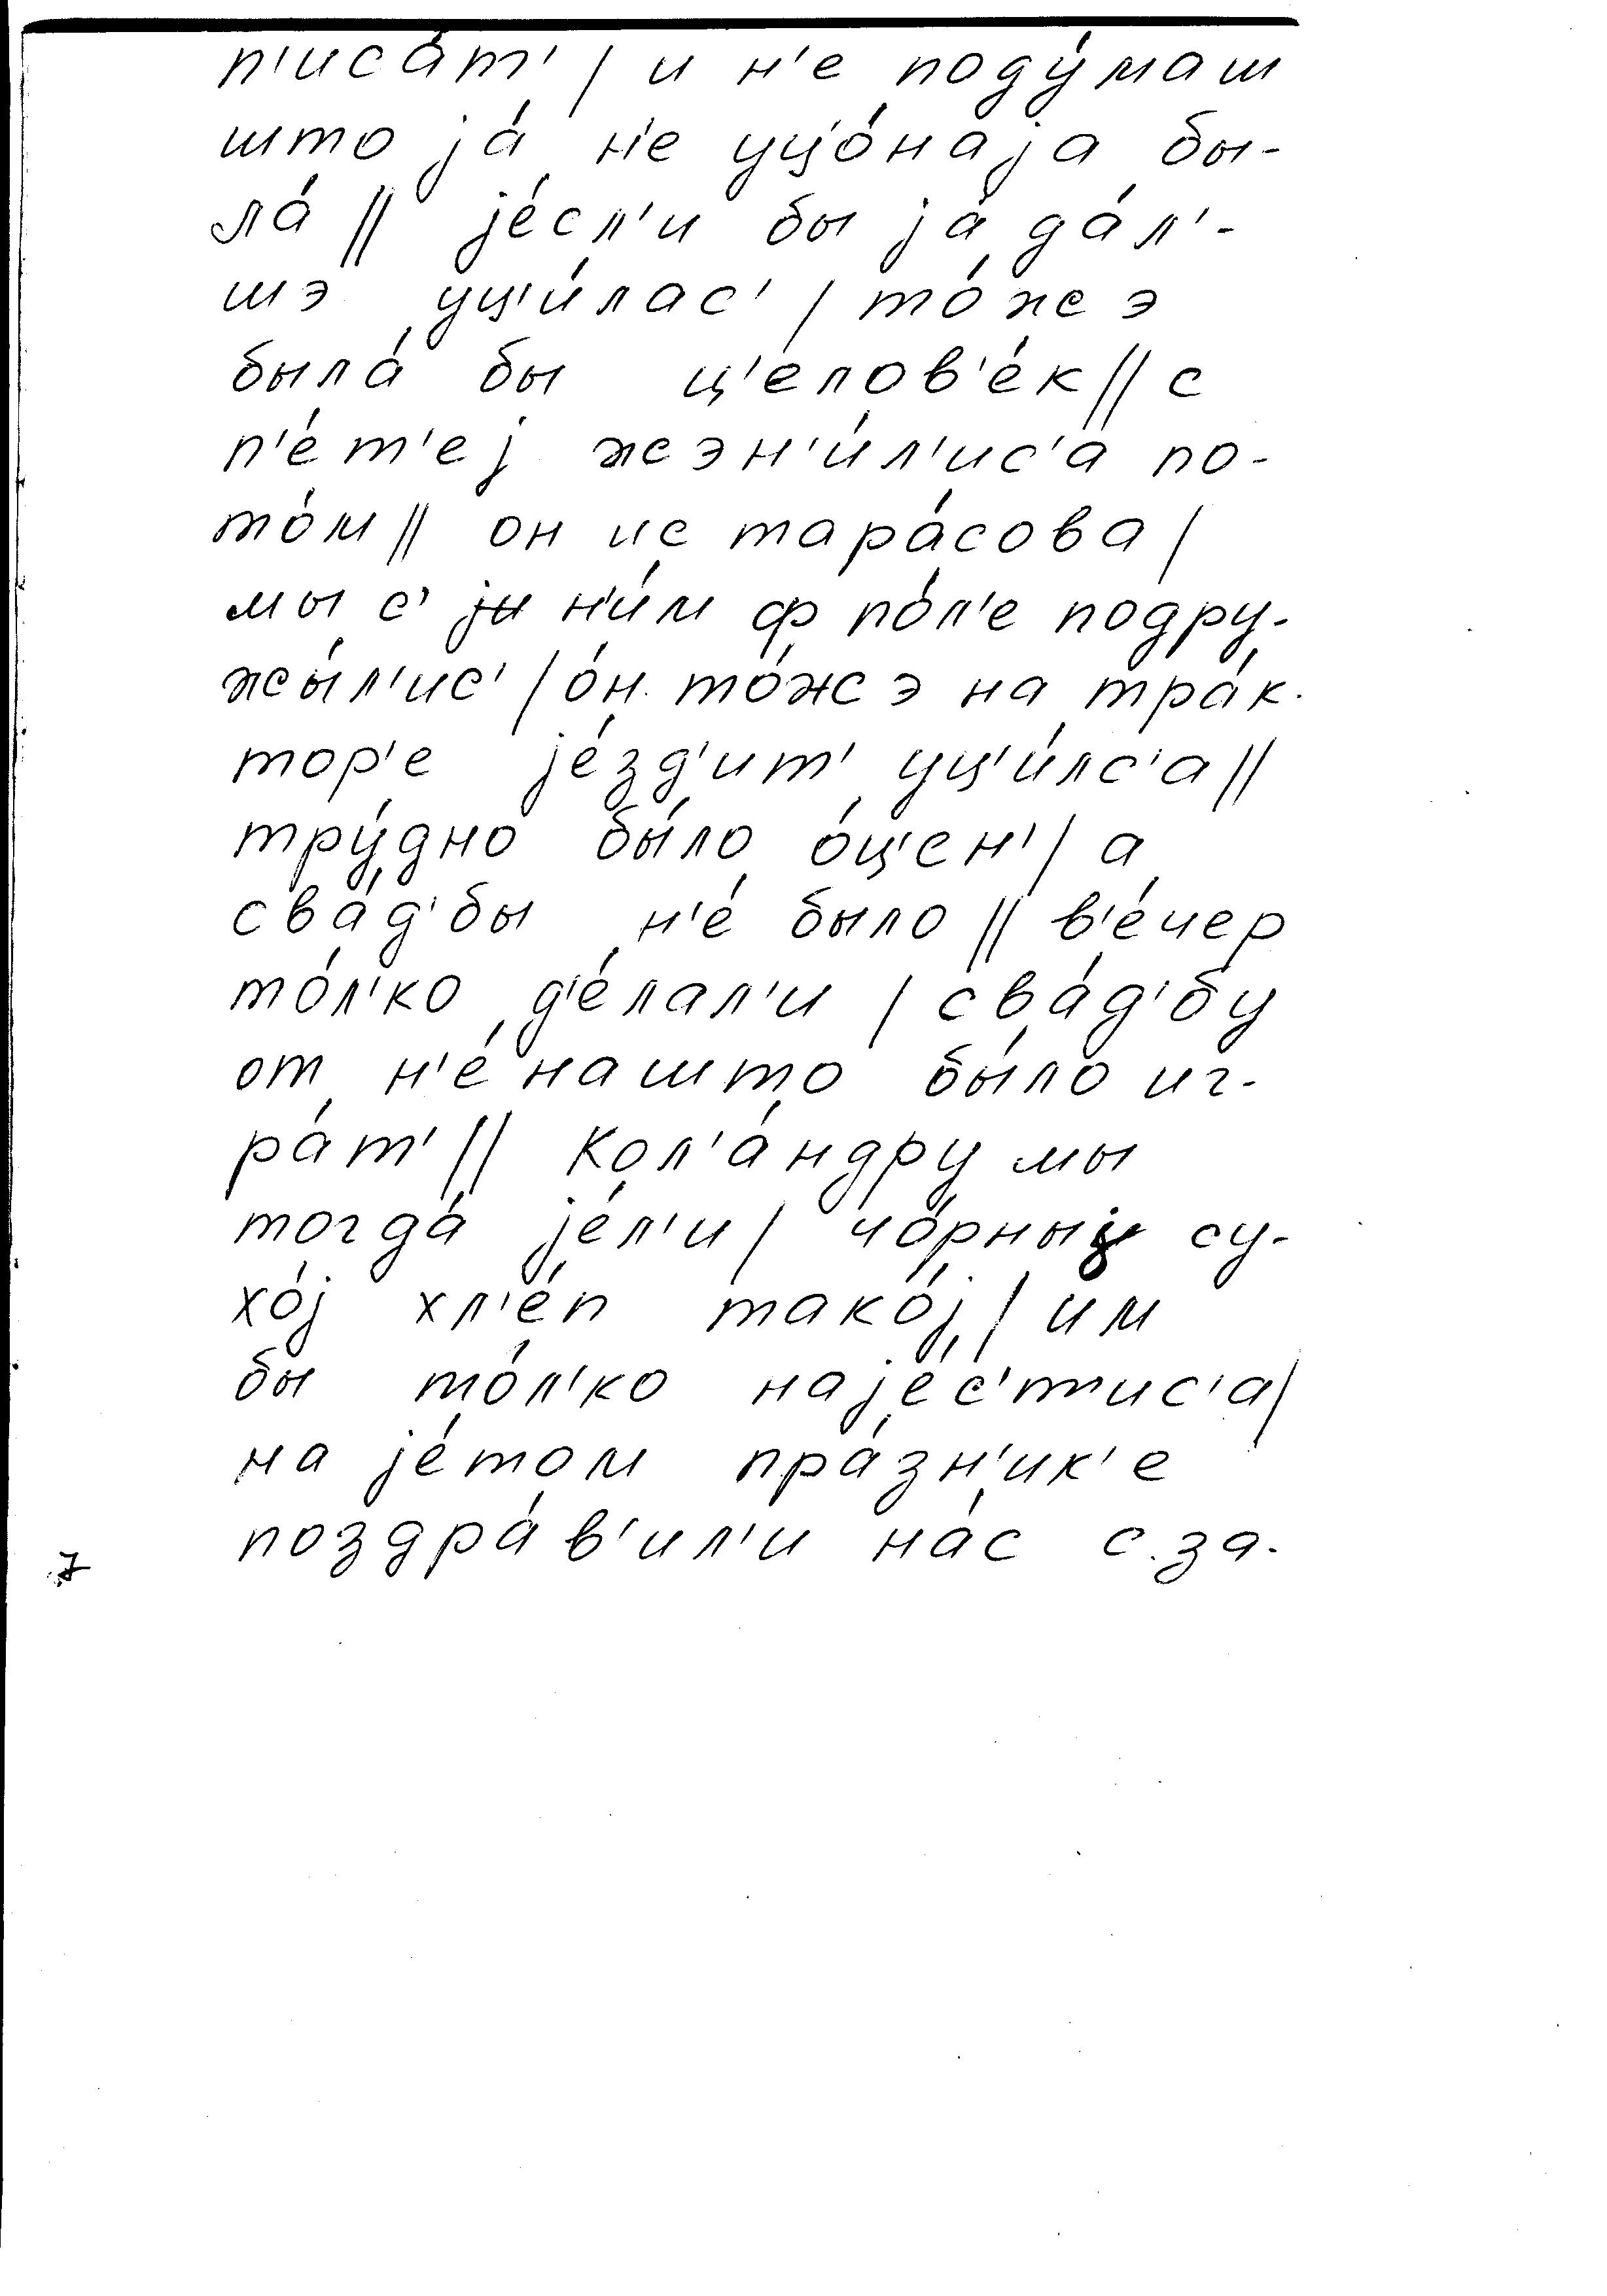 п'иса́т' / и н'е поду́маш
што jа́ н'е уц'о́наjа бы-
ла́ // jе́сл'и бы jа́ да́л'-
шэ уц'и́лас' / то́жэ
была́ бы ц'елов'е́к // с
п'е́т'еj жэн'и́л'ис'а по-
то́м // он ис тара́сова /
мы с' н'и́м ф по́л'е подру-
жы́л'ис' / о́н то́жэ на тра́к-
тор'е jе́зд'ит' уц'и́лс'а //
тру́дно бы́ло о́ц'ен' / а
сва́д'бы н'е́ было // в'е́чер
то́л'ко д'е́лал'и / сва́д'бу
от н'е́ нашто бы́ло иг-
ра́т' // Кол'а́ндру мы
тогда́ jе́л'и / чо́рныj су-
хо́j хл'е́п тако́j / им
бы то́л'ко наjе́с'т'ис'а /
на jе́том пра́зн'ик'е
поздра́в'ил'и на́с с за-
7